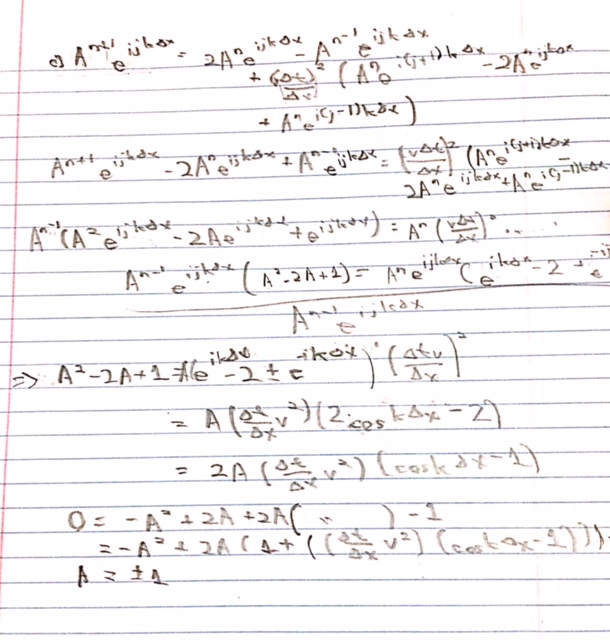 c) A^{n+1} e^{ijkΔx} = 2A^n e^{ijkΔx} - A^{n-1} e^{ijkΔx}
+ (vΔt)^2/Δx (A^n e^{i(j+1)kΔx} - 2A^n e^{ijkΔx}
+ A^n e^{i(j-1)kΔx})
A^{n+1} e^{ijkΔx} - 2A^n e^{ijkΔx} + A^{n-1} e^{ijkΔx} = (vΔt/Δx)^2 (A^n e^{i(j+1)kΔx} -
2A^n e^{ijkΔx} + A^n e^{i(j-1)kΔx}
A^{n-1} (A^2 e^{ijkΔx} - 2A e^{ijkΔx} + e^{ijkΔx}) = A^n (vΔt/Δx)^2 ...
A^{n-1} e^{ijkΔx} (A^2 - 2A + 1) = A^n e^{ijkΔx} (e^{ikΔx} - 2 + e^{-ij
A^{n-1} e^{ijkΔx}
=> A^2 - 2A + 1 = A(e^{ikΔx} - 2 + e^{-ikΔx}) (Δtv/Δx)^2
= A (Δt/Δx v^2) (2 cos kΔx - 2)
= 2A (Δt/Δx v^2) (cos kΔx - 1)
0 = -A^2 + 2A + 2A( " ) - 1
= -A^2 + 2A (1 + ((Δt/Δx v^2) (cos kΔx - 1))) -
A = ±1